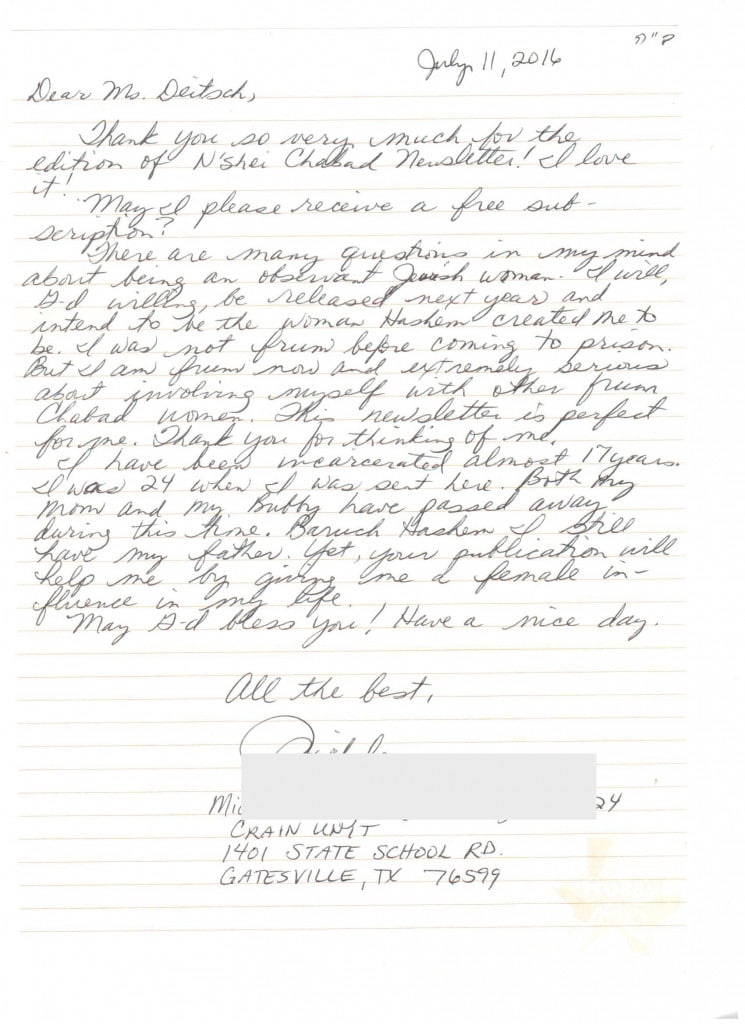 ב"ה
July 11, 2016
Dear Ms. Deitsch,
Thank you so very much for the
edition of N'shei Chabad Newsletter! I love
it!
May I please receive a free sub-
scription?
There are many questions in my mind
about being an observant Jewish woman. I will,
G-d willing, be released next year and
intend to be the woman Hashem created me to
be. I was not frum before coming to prison.
But I am frum now and extremely serious
about involving myself with other frum
Chabad women. This newsletter is perfect
for me. Thank you for thinking of me.
I have been incarcerated almost 17 years.
I was 24 when I was sent here. Both my
Mom and my Bubby have passed away
during this time. Baruch Hashem I still
have my father. Yet, your publication will
help me by giving me a female in-
fluence in my life.
May G-d bless you! Have a nice day.
All the best,
Mic 24
CRAIN UNIT
1401 STATE SCHOOL RD.
GATESVILLE, TX 76599